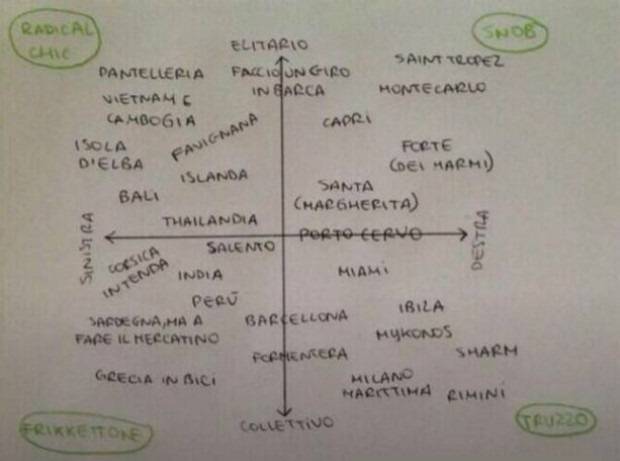 RADICAL
CHIC
ELITARIO
SNOB
PANTELLERIA
FACCIO UN GIRO
IN BARCA
SAINT TROPEZ
MONTECARLO
VIETNAM E
CAMBOGIA
FAVIGNANA
CAPRI
ISOLA
D'ELBA
FORTE
(DEI MARMI)
ISLANDA
BALI
SANTA
(MARGHERITA)
THAILANDIA
SINISTRA
SALENTO
PORTO CERVO
DESTRA
CORSICA
IN TENDA
INDIA
MIAMI
PERÙ
SARDEGNA, MA A
FARE IL MERCATINO
BARCELLONA
IBIZA
MYKONOS
FORMENTERA
SHARM
GRECIA IN BICI
MILANO
MARITTIMA
RIMINI
FRIKKETTONE
COLLETTIVO
TRUZZO